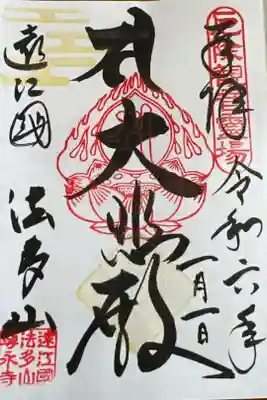 奉拝
令和六年
一月一日
大悲殿
遠江國
法多山
遠江國
法多山
尊永寺